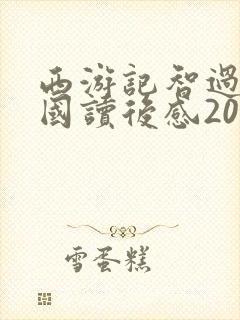 西游記智過
國讀後感20
雪蛋糕